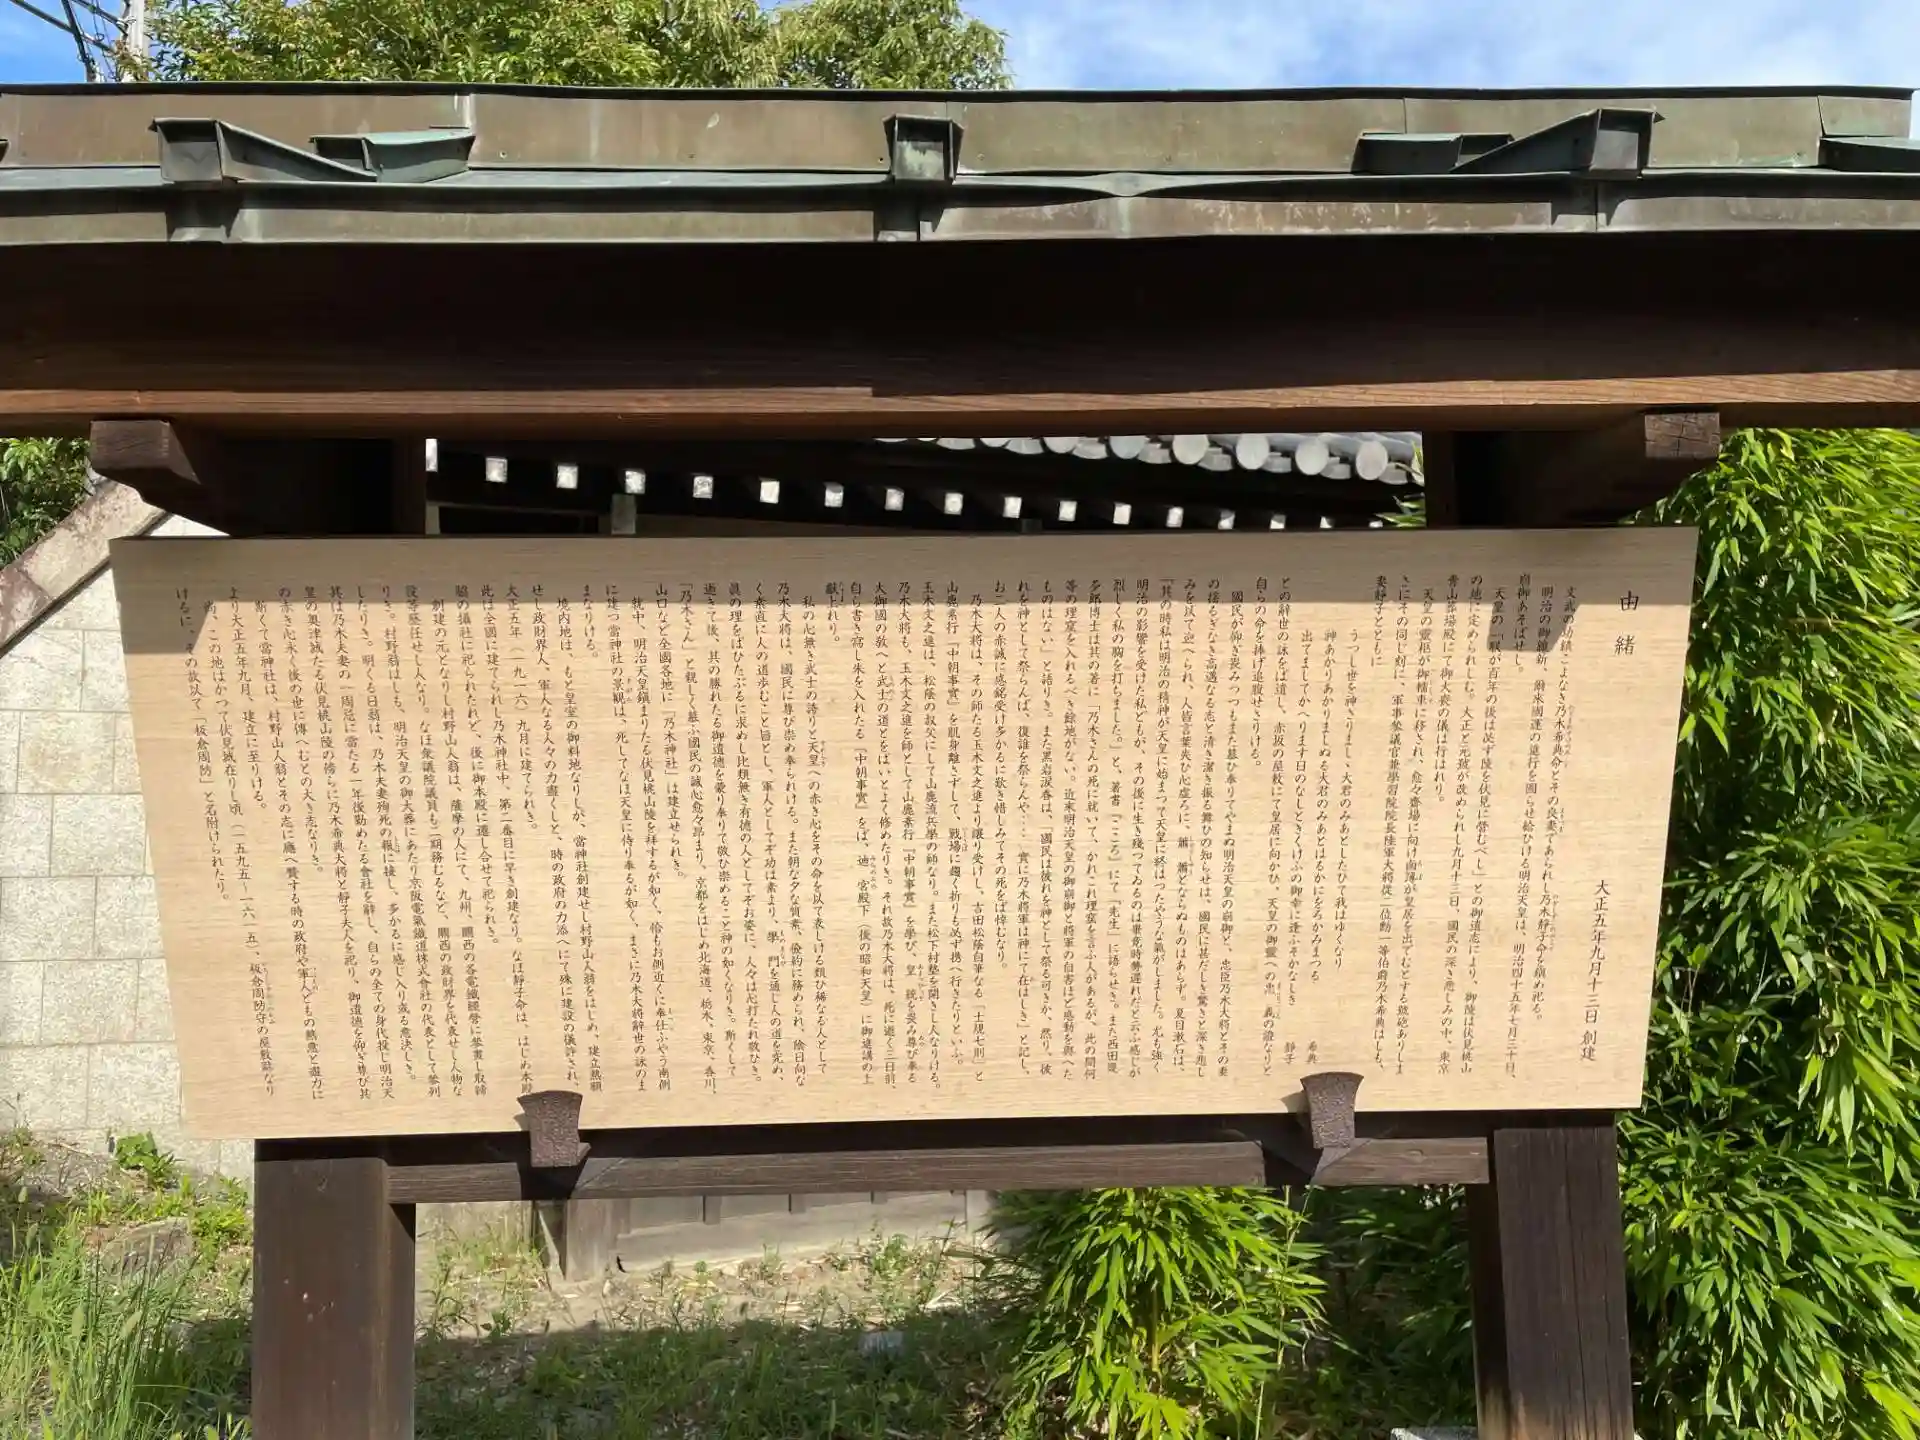 由緒
大正五年九月十三日 創建
文武の功績こよなき乃木希典命とその良妻であられし乃木靜子命を鎮め祀る。
明治の御維新、爾來國運の進行を圖らせ給ひける明治天皇は、明治四十五年七月三十日、
崩御あそばせし。
天皇の「朕が百年の後は必ず陵を伏見に營むべし」との御遺志により、御陵は伏見桃山
の地に定められしむ。大正と元號が改められし九月十三日、國民の深き悲しみの中、東京
青山葬場殿にて御大喪の儀は行はれり。
天皇の靈柩が御轜車に移され、愈々齋場に向け鹵簿が皇居を出でむとする號砲ありしま
さにその同じ刻に、軍事參議官兼學習院院長陸軍大將從二位勳一等伯爵乃木希典はしも、
妻靜子とともに
うつし世を神さりましゝ大君のみあとしたひて我はゆくなり
神あかりあかりましぬる大君のみあとはるかにをろかみまつる 希典
出てましてかへります日のなしときくけふの御幸に逢ふそかなしき 靜子
との辭世の詠をば遺し、赤坂の屋敷にて皇居に向かひ、天皇の御靈への忠義の證なりと
自らの命を捧げ追腹せさりける。
國民が仰ぎ畏みつつもまた慕ひ奉りてやまぬ明治天皇の崩御と、忠臣乃木大將とその妻
の揺るぎなき高邁なる志と清き潔き振る舞ひの知らせは、國民に甚だしき驚きと深き悲し
みを以て迎へられ、人皆言葉失ひ心虚ろに、蕭蕭とならぬものはあらず。夏目漱石は、
『其の時私は明治の精神が天皇に始まつて天皇に終はつたやうな氣がしました。尤も強く
明治の影響を受けた私どもが、その後に生き殘つてゐるのは畢竟時勢遅れだと云ふ感じが
烈しく私の胸を打ちました。』と、著書『こころ』にて「先生」に語らせき。また西田幾
多郎博士は其の著に「乃木さんの死に就いて、かれこれ理窟を言ふ人があるが、此の間何
等の理窟を入れるべき餘地がない。近來明治天皇の御崩御と將軍の自害ほど感動を與へた
ものはない。」と語りき。また黒岩涙香は、「國民は彼れを神として祭る可きか、然り。彼
れを神として祭らんば、復誰を祭らんや…實に乃木將軍は神にて在はしき」と記し、
お二人の赤誠に感銘受け多かるに歎き惜しみてその死をば悼むなり。
乃木大將は、その師たる玉木文之進より譲り受けし、吉田松陰自筆なる「士規七則」と
山鹿素行『中朝事實』を肌身離さずして、戰場に趨く折りも必ず携へ行きたりといふ。
玉木文之進は、松陰の叔父にして山鹿流兵學の師なり。また松下村塾を開きし人なりける。
乃木大將も、玉木文之進を師として山鹿素行『中朝事實』を學び、皇統を畏み尊び奉る
大御國の敎へと武士の道とをばいとよく修めたりき。それ故乃木大將は、死に逝く三日前、
自ら書き寫し朱を入れたる『中朝事實』をば、迪宮殿下（後の昭和天皇）に御進講の上
獻上れり。
私の心無き武士の誇りと天皇への赤き心をその命を以て表しける類ひ稀なる人として
乃木大將は、國民に尊び崇め奉られける。また朝な夕な質素、儉約に務められ、陰日向な
く素直に人の道歩むこと旨とし、軍人としてぞ功は素より、學問を通じ人の道を究め、
眞の理をばひたぶるに求めし比類無き有德の人としてぞお姿に、人々は心打たれ敬ひき。
逝きて後、其の勝れたる御遺德を慕り奉りて敬ひ崇めること神の如くなりき。斯くして
「乃木さん」と親しく慕ふ國民の誠心愈々昂まり、京都をはじめ北海道、栃木、東京、香川、
山口など全國各地に「乃木神社」は建立せられき。
就中、明治天皇鎮まりたる伏見桃山陵を拜するが如く、恰もお側近くに奉仕ふやう南側
に建つ當神社の景観は、死してなほ天皇に侍り奉るが如く、まさに乃木大將辭世の詠のま
まなりける。
境内地は、もと皇室の御料地なりしが、當神社創建せし村野山人翁をはじめ、建立熱願
せし政財界人、軍人なる人々の力盡くしと、時の政府の力添へにて殊に建設の儀許され、
大正五年（一九一六）九月に建てられき。
此は全國に建てられし乃木神社中、第二番目に早き創建なり。なほ靜子命は、はじめ本殿
脇の攝社に祀られたれど、後に御本殿に遷し合せて祀られき。
創建の元となりし村野山人翁は、薩摩の人にて、九州、關西の各電鐵經營に參畫し取締
役等歴任せし人なり。なほ衆議院議員も二期務むるなど、關西の政財界を代表せし人物な
りき。村野翁はしも、明治天皇の御大葬にあたり京阪電氣鐵道株式會社の代表として參列
したりき。明くる日翁は、乃木夫妻殉死の報に接し、多かるに感じ入り或る意決しき。
其は乃木夫妻の一周忌に當たる一年後勤めたる會社を辭し、自らの全ての身代投じ明治天
皇の奥津城たる伏見桃山陵の傍らに乃木希典大將と靜子夫人を祀り、御遺德を仰ぎ尊び其
の赤き心永く後の世に傳へむとの大き志なりき。
斯くて當神社は、村野山人翁とその志に應へ賛する時の政府や軍人どもの熱意と盡力に
より大正五年九月、建立に至りける。
尚、この地はかつて伏見城在りし頃（一五九五～一六一五）、板倉周防守の屋敷跡なり
けるに、その故以て「板倉周防」と名附けられたり。